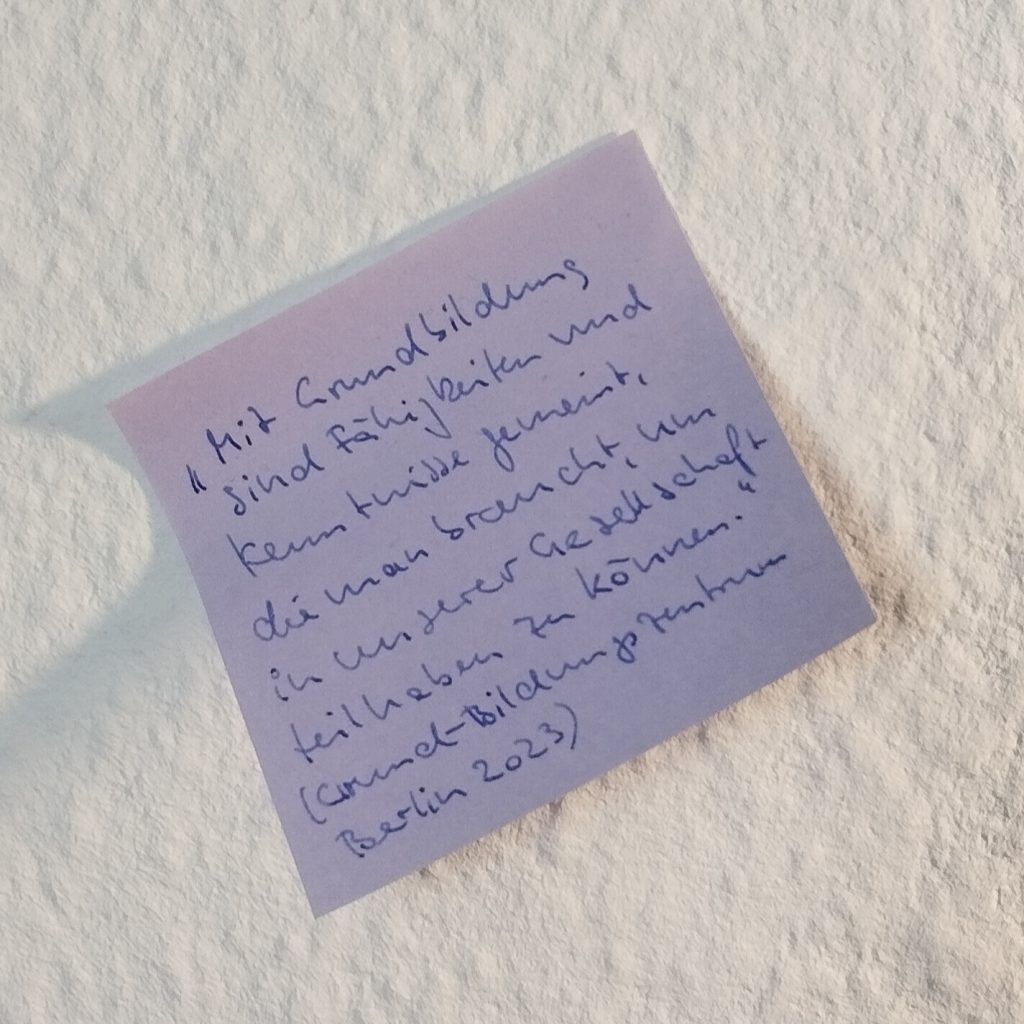 „Mit Grundbildung
sind Fähigkeiten und
Kenntnisse gemeint,
die man braucht, um
in unserer Gesellschaft
teilhaben zu können.“
(Grund-Bildungszentrum
Berlin 2023)